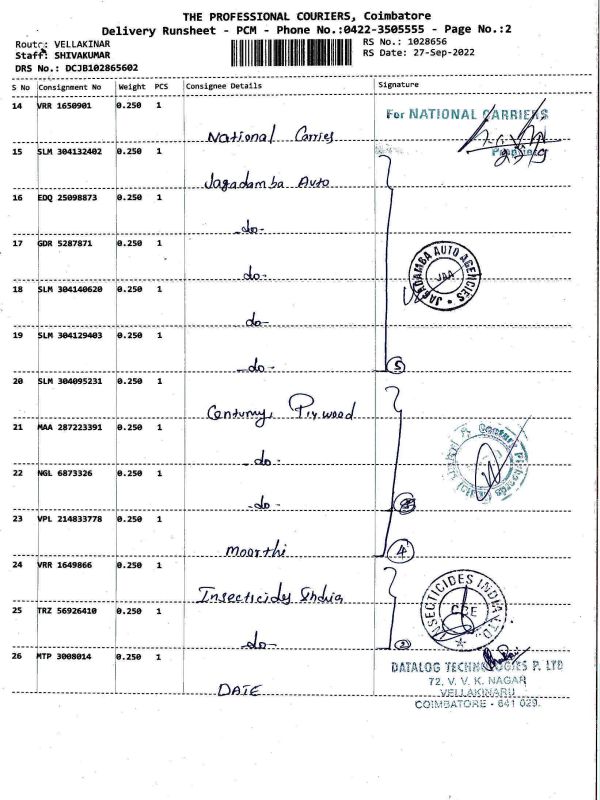 THE PROFESSIONAL COURIERS, Coimbatore
Delivery Runsheet - PCM - Phone No.:0422-3505555 - Page No.:2
Route: VELLAKINAR
Staff: SHIVAKUMAR
DRS No.: DCJB102865602
RS No.: 1028656
RS Date: 27-Sep-2022
S No Consignment No Weight PCS Consignee Details Signature
14 VRR 1650901 0.250 1
For NATIONAL CARRIERS
National Carries
15 SLM 304132402 0.250 1
Jagadamba Auto
16 EDQ 25098873 0.250 1
-do-
17 GDR 5287871 0.250 1
do-
JAGADAMBA AUTO AGENCIES
JAA
18 SLM 304140620 0.250 1
do-
19 SLM 304129403 0.250 1
-do-
5
20 SLM 304095231 0.250 1
Century Plywood
21 MAA 287223391 0.250 1
-do-
22 NGL 6873326 0.250 1
-do-
23 VPL 214833778 0.250 1
Moorthi
4
24 VRR 1649866 0.250 1
Insecticides India
INSECTICIDES INDIA LTD
25 TRZ 56926410 0.250 1
-do-
2
26 MTP 3008014 0.250 1
DATE
DATALOG TECHNOLOGIES P. LTD
72, V. V. K. NAGAR
VELLAKINARU
COIMBATORE - 641 029.